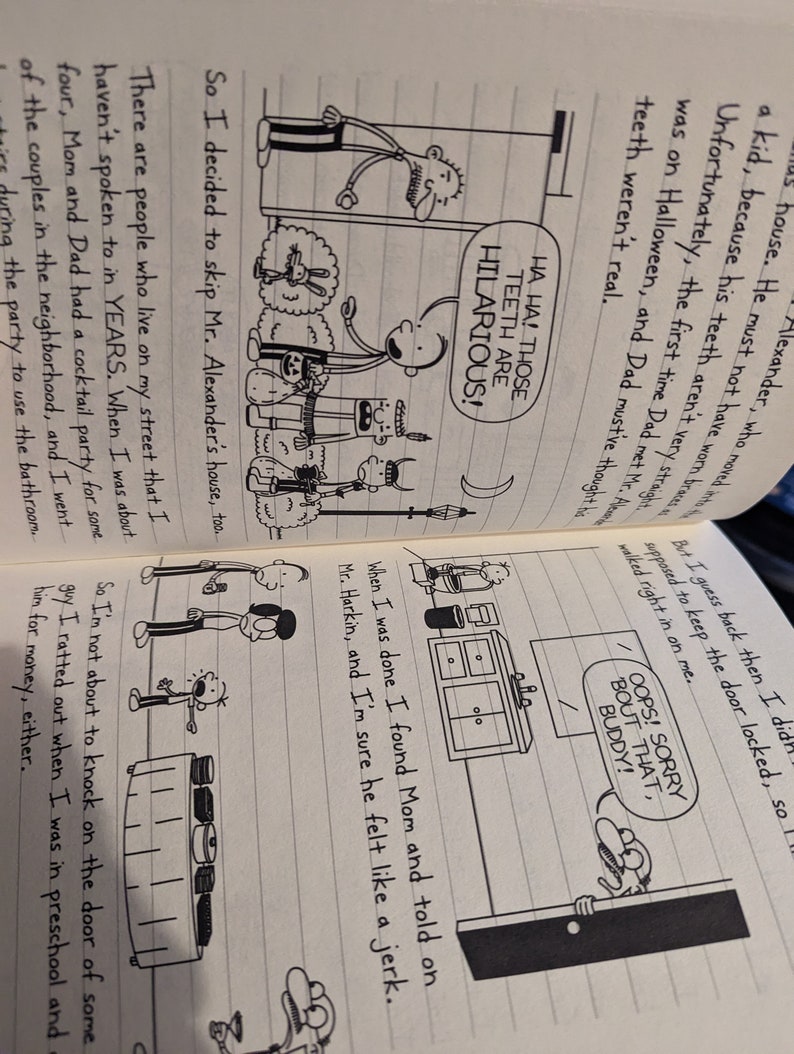 Alexander, who moved into
house. He must not have worn braces as
a kid, because his teeth aren't very straight.
Unfortunately, the first time Dad met Mr.
was on Halloween, and Dad must've thought his
teeth weren't real.
HA HA! THOSE
TEETH ARE
HILARIOUS!
So I decided to skip Mr. Alexander's house, too.
There are people who live on my street that I
haven't spoken to in YEARS. When I was about
four, Mom and Dad had a cocktail party for some
of the couples in the neighborhood, and I went
during the party to use the bathroom.
But I guess back then I didn't
supposed to keep the door locked, so
walked right in on me.
OOPS! SORRY
'BOUT THAT,
BUDDY!
When I was done I found Mom and told on
Mr. Harkin, and I'm sure he felt like a jerk.
So I'm not about to knock on the door of some
guy I ratted out when I was in preschool and
him for money, either.